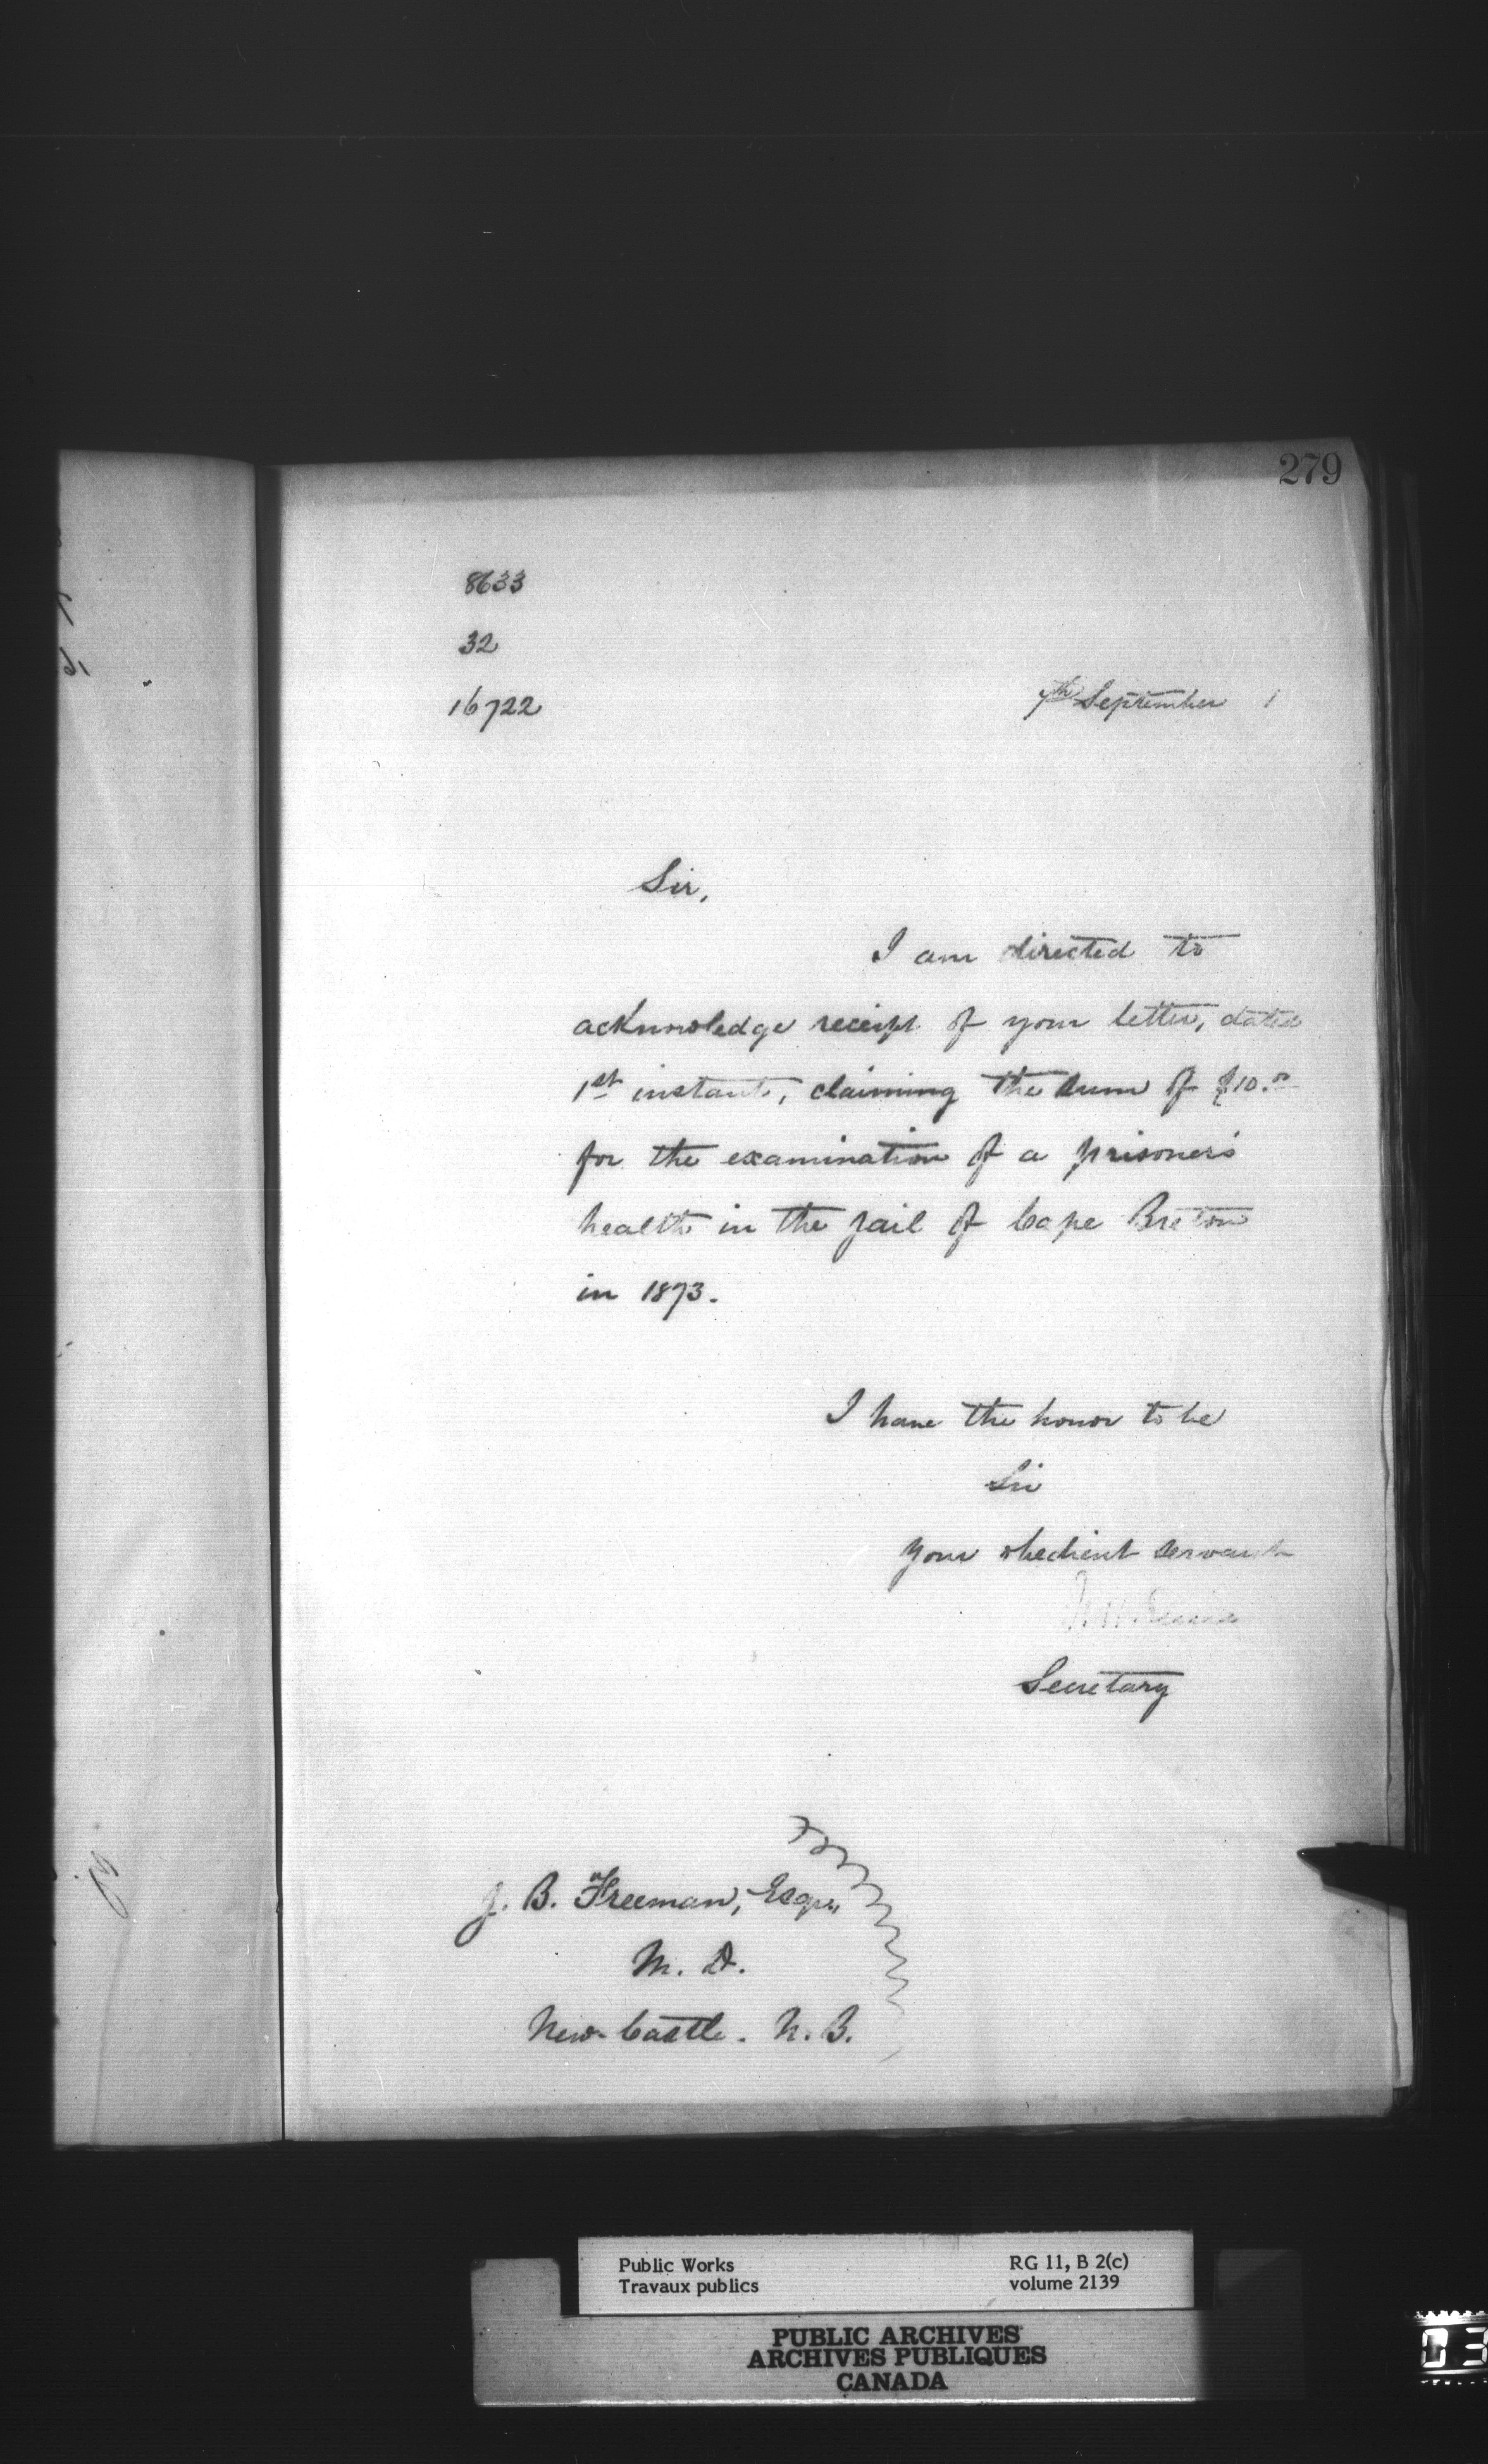 279
8633
32
16722
7th September 1
Sir,
I am directed to
acknowledge receipt of your letter, dated
1st instant, claiming the sum of $10.00
for the examination of a prisoner's
health in the jail of Cape Breton
in 1873.
I have the honor to be
Sir
Your obedient servant
Secretary
J. B. Freeman, Esqr.,
M. D.
New-Castle. N. B.
Public Works
Travaux publics
RG 11, B 2(c)
volume 2139
PUBLIC ARCHIVES
ARCHIVES PUBLIQUES
CANADA
03